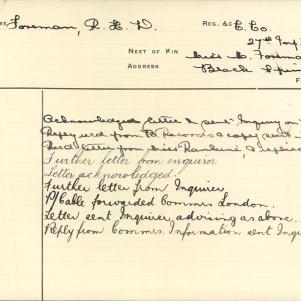 Foreman, R. E. V. REG. &C E. Co.
27th Inf.
NEXT OF KIN Miss E. Foreman
ADDRESS Black Spri
Acknowledged letter & sent Inquiry on
Reply recd from B Records 2 copies sent
Recd letter from Miss Rankine, & replied
Further letter from enquirer
Letter acknowledged.
Further letter from Inquirer
P/Cable forwarded Commrs London.
Letter sent Inquirer advising as above.
Reply from Commrs. Information sent Inqu